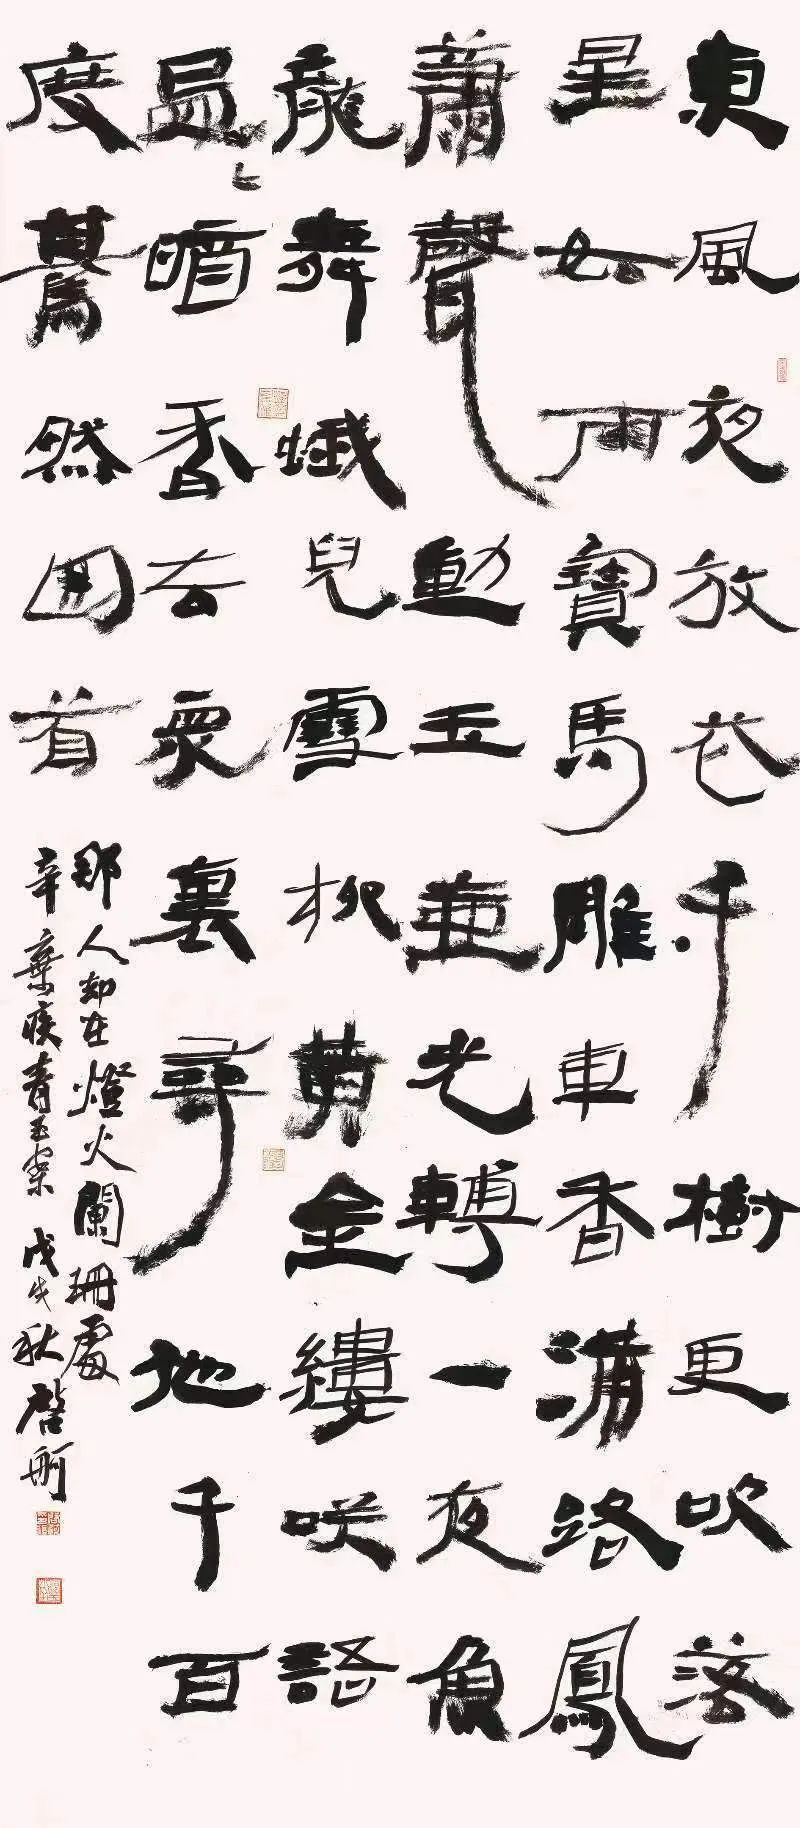 東風夜放花千樹更吹落
星如雨寶馬雕車香滿路鳳
蕭聲動玉壺光轉一夜魚
龍舞蛾兒雪柳黃金縷咲語
盈〻暗香去眾裏尋他千百
度驀然囬首
那人却在燈火闌珊處
辛棄疾青玉案 戊戌秋 啓舸